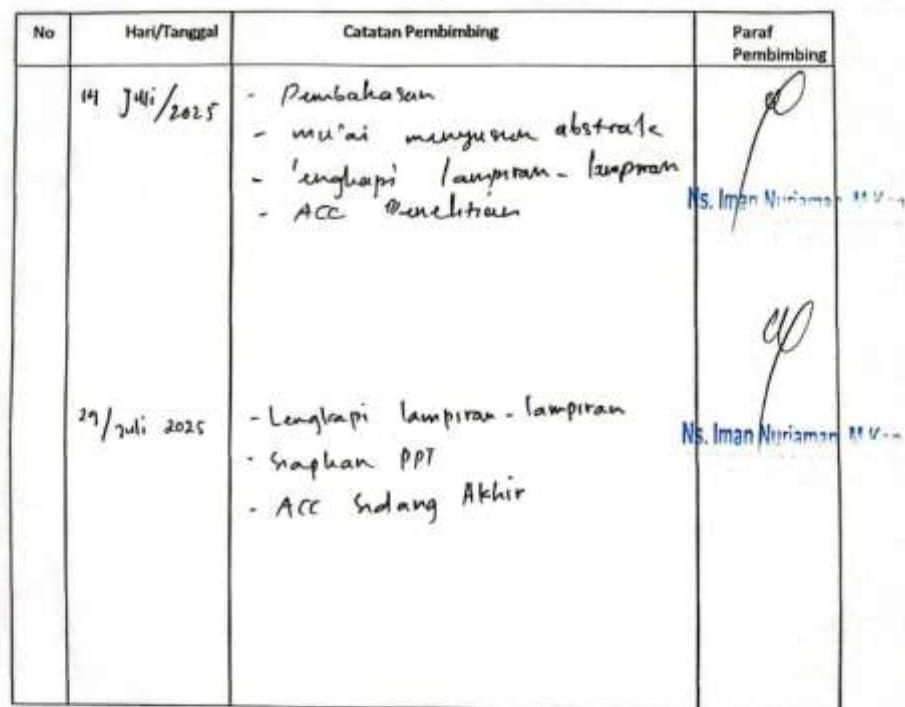 No Hari/Tanggal Catatan Pembimbing Paraf
Pembimbing
14 Juli/2025 - Pembahasan
- mulai menyusun abstrak
- lengkapi lampiran-lampiran
- ACC Penelitian
Ns. Iman Nuriaman
29/Juli 2025 - Lengkapi lampiran-lampiran
- siapkan PPT
- ACC Sidang Akhir
Ns. Iman Nuriaman